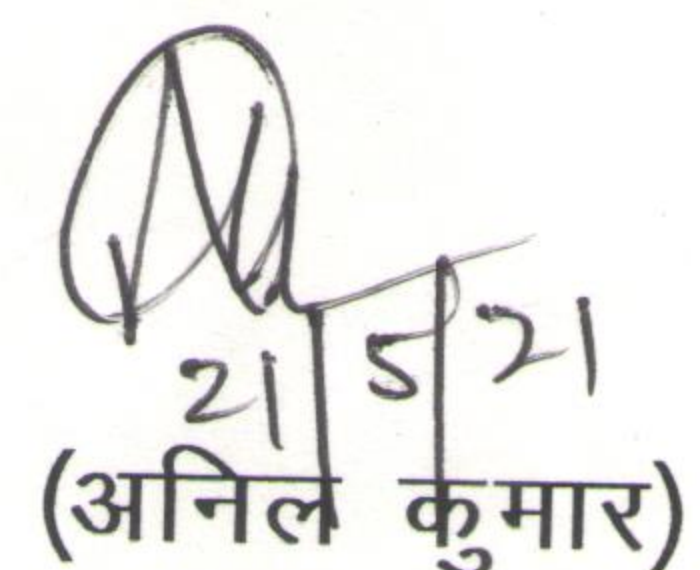 21/5/21
(अनिल कुमार)